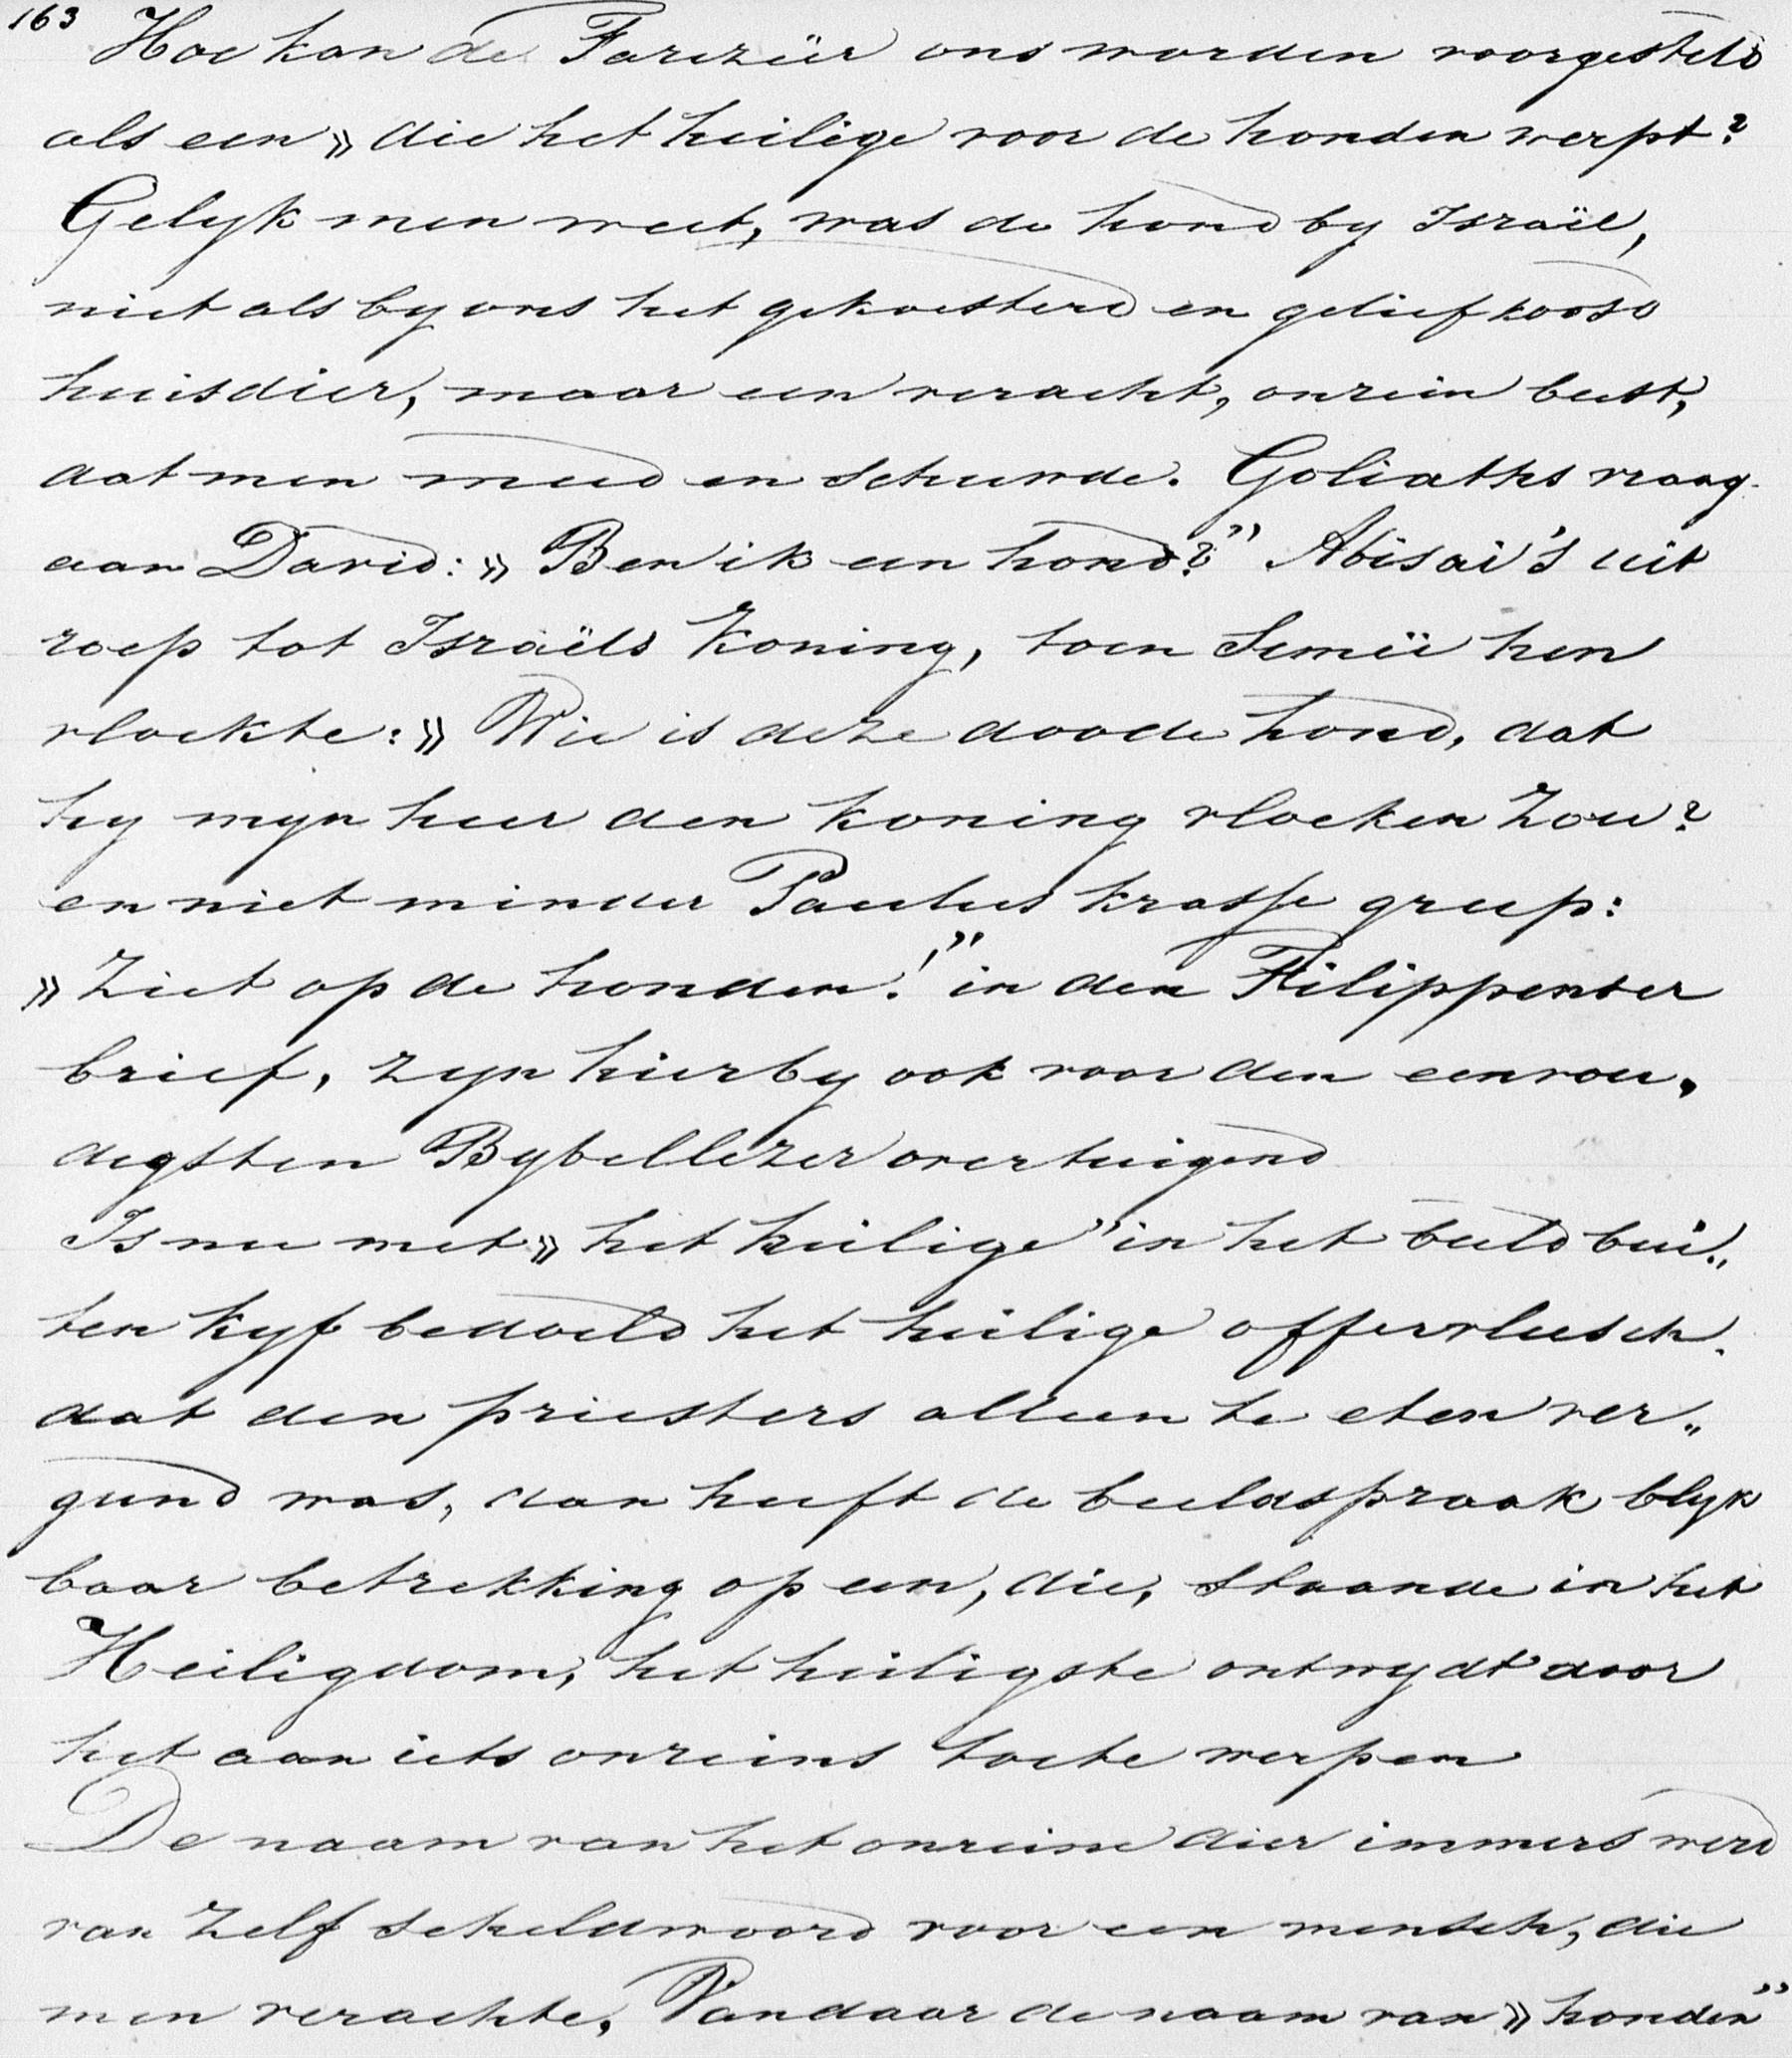 163 Hoe kan de Farizeër ons worden voorgesteld
als een » die het heilige voor de honden werpt?
Gelyk men weet, was de hond by Israël,
niet als by ons het gekoesterd en geliefkoosd
huisdier, maar een veracht, onrein beest,
dat men meed en schuwde. Goliaths vraag
aan David: » Ben ik een hond?" Abisaï's uit
roep tot Israëls Koning, toen Simeï hen
vloekte: » Wie is deze doode hond, dat
hy myn heer den koning vloeken zou?
en niet minder Paulus krasse greep:
» Ziet op de honden!" in den Filippenser
brief, zyn hierby ook voor den eenvou„
digsten Bybellezer overtuigend
Is nu met » het heilige" in het beeld bui„
ten kyf bedoeld het heilige offervleesch.
dat den priesters alleen te eten ver„
gund was, dan heeft de beeldspraak blyk
baar betrekking op een, die, staande in het
Heiligdom, het heiligste ontwydt door
het aan iets onreins toe te werpen
De naam van het onreine dier immers werd
van zelf scheldwoord voor een mensch, die
men verachte. Vandaar de naam van » honden"